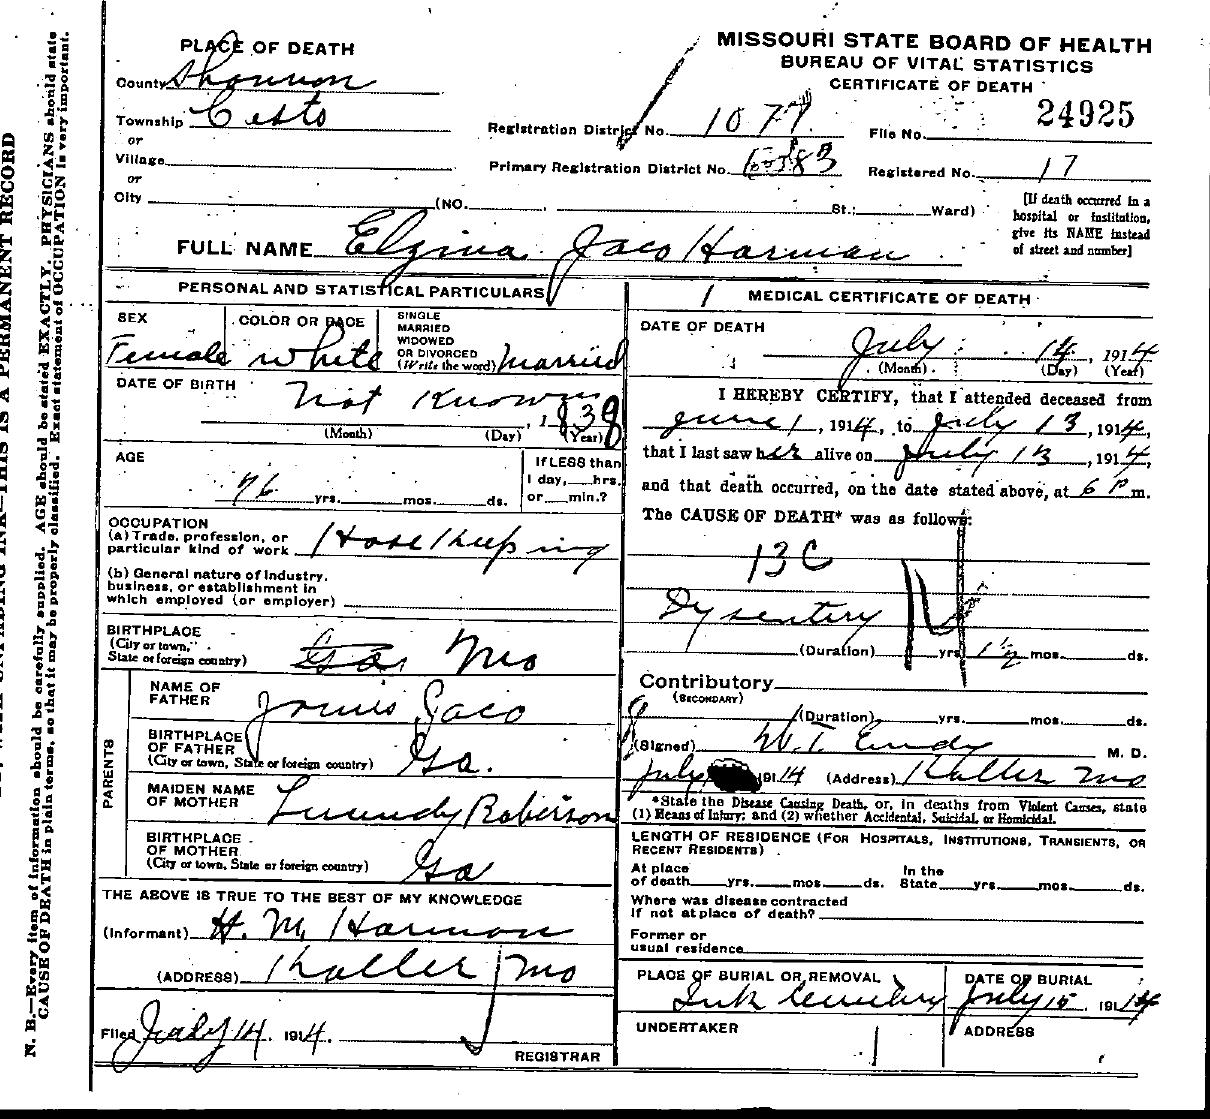 MISSOURI STATE BOARD OF HEALTH
BUREAU OF VITAL STATISTICS
CERTIFICATE OF DEATH
PLACE OF DEATH
County Shannon
Township
or
Village
or
City (NO. , St.; Ward)
Registration District No. 1077 File No. 24925
Primary Registration District No. Registered No. 17
[If death occurred in a
hospital or institution,
give its NAME instead
of street and number]
FULL NAME Elzina Jaco Harman
PERSONAL AND STATISTICAL PARTICULARS
SEX Female
COLOR OR RACE White
SINGLE
MARRIED
WIDOWED
OR DIVORCED
(Write the word) Married
DATE OF BIRTH Not Known, 1838
(Month) (Day) (Year)
AGE
76 yrs. mos. ds.
If LESS than
1 day, hrs.
or min.?
OCCUPATION
(a) Trade, profession, or
particular kind of work
(b) General nature of industry,
business, or establishment in
which employed (or employer)
BIRTHPLACE
(City or town,
State or foreign country) Mo
PARENTS
NAME OF
FATHER Jaco
BIRTHPLACE
OF FATHER
(City or town, State or foreign country) Ga.
MAIDEN NAME
OF MOTHER Roberson
BIRTHPLACE
OF MOTHER
(City or town, State or foreign country) Ga
THE ABOVE IS TRUE TO THE BEST OF MY KNOWLEDGE
(Informant) H. M. Harmon
(ADDRESS) Mo
Filed July 14, 1914.
REGISTRAR
MEDICAL CERTIFICATE OF DEATH
DATE OF DEATH
July 14, 1914
(Month) (Day) (Year)
I HEREBY CERTIFY, that I attended deceased from
June 1, 1914, to July 13, 1914,
that I last saw her alive on July 13, 1914,
and that death occurred, on the date stated above, at 6 P m.
The CAUSE OF DEATH* was as follows:
13C
Dysentery
(Duration) yrs. 1½ mos. ds.
Contributory
(SECONDARY)
(Duration) yrs. mos. ds.
(Signed) W. T. M. D.
July 1914 (Address) Mo
*State the Disease Causing Death, or, in deaths from Violent Causes, state
(1) Means of Injury; and (2) whether Accidental, Suicidal, or Homicidal.
LENGTH OF RESIDENCE (FOR HOSPITALS, INSTITUTIONS, TRANSIENTS, OR
RECENT RESIDENTS)
At place
of death yrs. mos. ds.
In the
State yrs. mos. ds.
Where was disease contracted
if not at place of death?
Former or
usual residence
PLACE OF BURIAL OR REMOVAL
Cemetery
DATE OF BURIAL
July 15, 1914
UNDERTAKER
ADDRESS
THIS IS A PERMANENT RECORD
N. B.—Every item of information should be carefully supplied. AGE should be stated EXACTLY. PHYSICIANS should state
CAUSE OF DEATH in plain terms, so that it may be properly classified. Exact statement of OCCUPATION is very important.